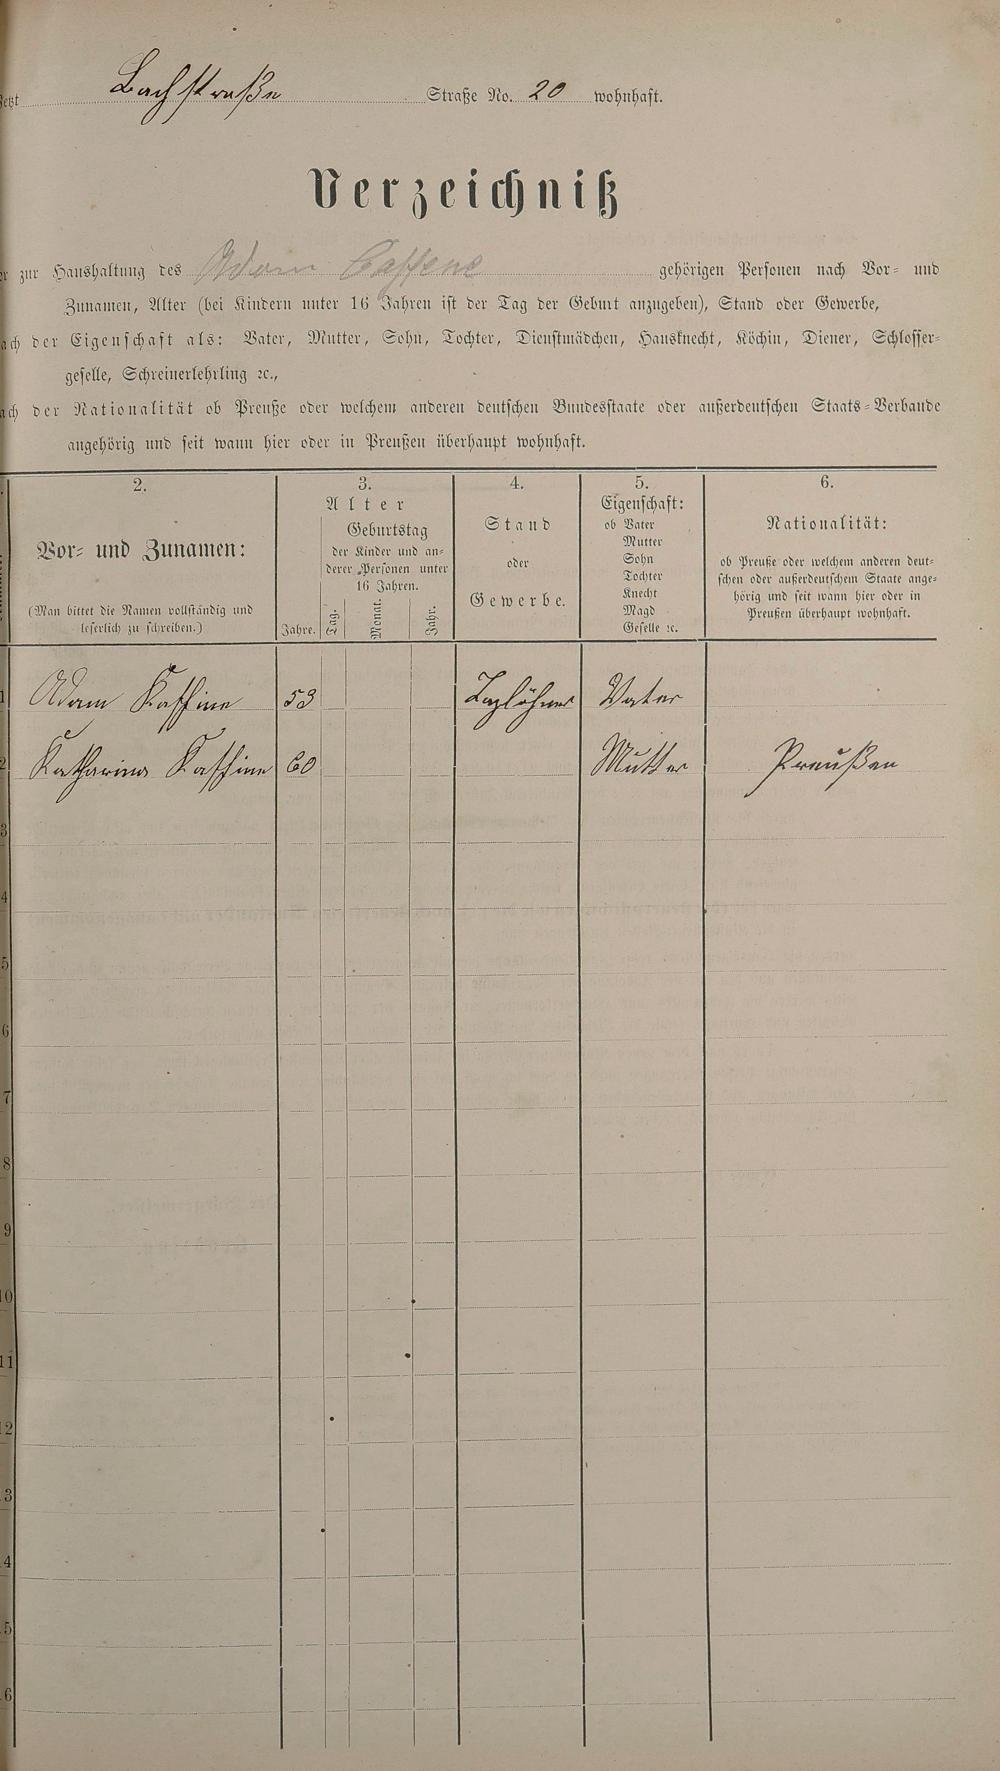 Jetzt Bachstraße Straße No. 20 wohnhaft.
Verzeichniß
zur Haushaltung des Adam Caffene gehörigen Personen nach Vor- und
Zunamen, Alter (bei Kindern unter 16 Jahren ist der Tag der Geburt anzugeben), Stand oder Gewerbe,
der Eigenschaft als: Vater, Mutter, Sohn, Tochter, Dienstmädchen, Hausknecht, Köchin, Diener, Schlosser-
geselle, Schreinerlehrling ꝛc.,
der Nationalität ob Preuße oder welchem anderen deutschen Bundesstaate oder außerdeutschen Staats-Verbande
angehörig und seit wann hier oder in Preußen überhaupt wohnhaft.
2.
Vor- und Zunamen:
(Man bittet die Namen vollständig und
leserlich zu schreiben.)
3.
Alter
Jahre.
Geburtstag
der Kinder und an-
derer Personen unter
16 Jahren.
Tag. Monat. Jahr.
4.
Stand
oder
Gewerbe.
5.
Eigenschaft:
ob Vater
Mutter
Sohn
Tochter
Knecht
Magd
Geselle ꝛc.
6.
Nationalität:
ob Preuße oder welchem anderen deut-
schen oder außerdeutschem Staate ange-
hörig und seit wann hier oder in
Preußen überhaupt wohnhaft.
1 Adam Kaffine 53 Taglöhner Vater
2 Katharina Kaffine 60 Mutter Preußen
3
4
5
6
7
8
9
10
11
12
3
4
5
6